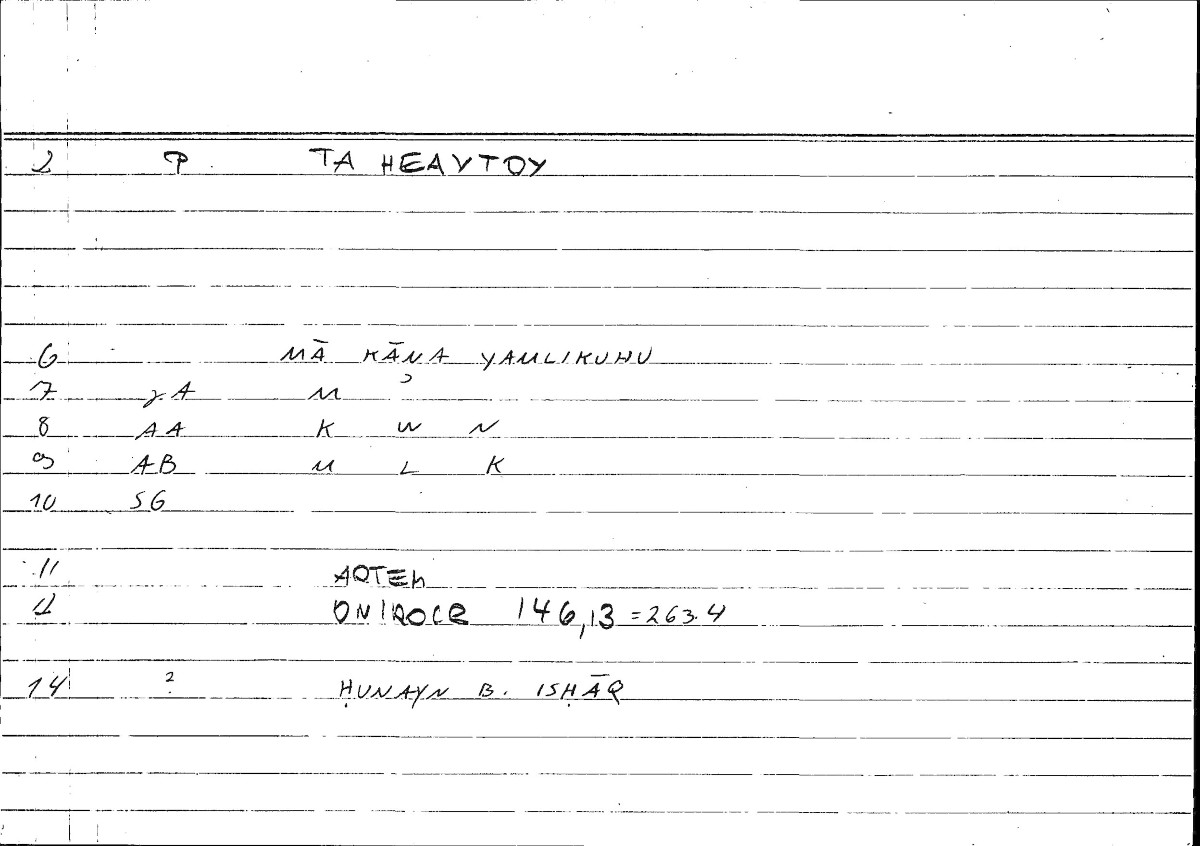 2 P. TA HEAVTOY
6 MĀ KĀNA YAMLIKUHU
7 γA M ʾ
8 AA K W N
9 AB M L K
10 SG
11 AQTEM
12 ONIROCR 146,13 = 263.4
14 2 ḤUNAYN B. ISḤĀQ